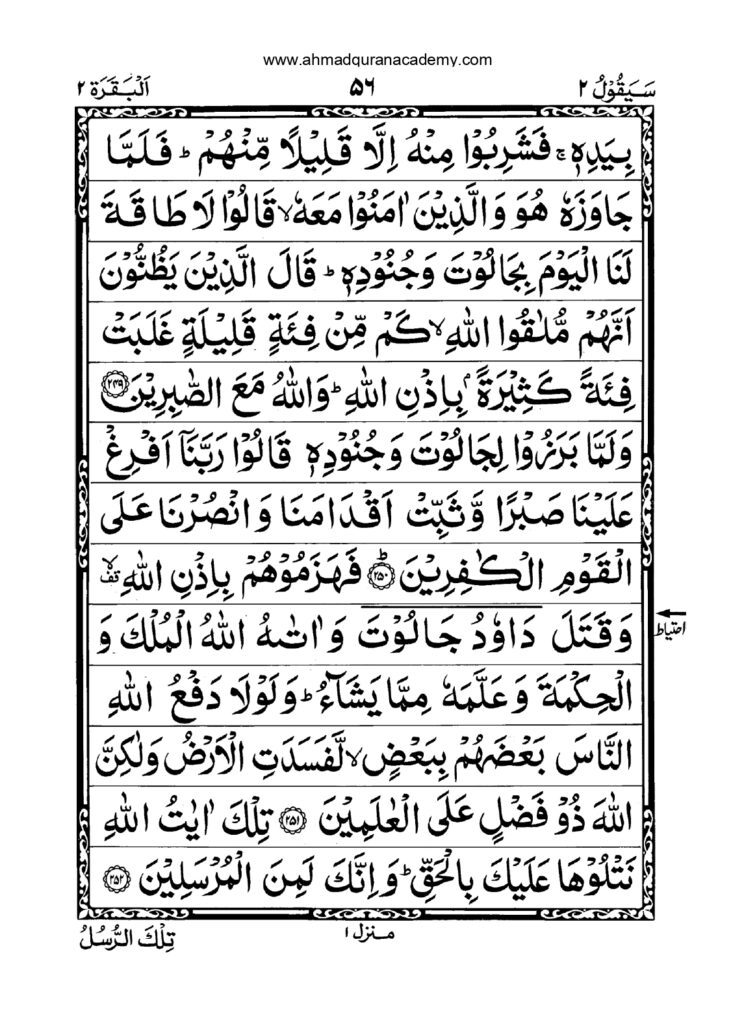 www.ahmadquranacademy.com
سَيَقُوْلُ ٢ ۵۶ اَلْبَقَرَة ٢
بِيَدِهٖ ۚ فَشَرِبُوْا مِنْهُ اِلَّا قَلِيْلًا مِّنْهُمْ ؕ فَلَمَّا
جَاوَزَهٗ هُوَ وَالَّذِيْنَ اٰمَنُوْا مَعَهٗ ۙ قَالُوْا لَا طَاقَةَ
لَنَا الْيَوْمَ بِجَالُوْتَ وَجُنُوْدِهٖ ؕ قَالَ الَّذِيْنَ يَظُنُّوْنَ
اَنَّهُمْ مُّلٰقُوا اللّٰهِ ۙ كَمْ مِّنْ فِئَةٍ قَلِيْلَةٍ غَلَبَتْ
فِئَةً كَثِيْرَةًۢ بِاِذْنِ اللّٰهِ ؕ وَاللّٰهُ مَعَ الصّٰبِرِيْنَ ﴿٢٤٩﴾
وَلَمَّا بَرَزُوْا لِجَالُوْتَ وَجُنُوْدِهٖ قَالُوْا رَبَّنَاۤ اَفْرِغْ
عَلَيْنَا صَبْرًا وَّثَبِّتْ اَقْدَامَنَا وَانْصُرْنَا عَلَى
الْقَوْمِ الْكٰفِرِيْنَ ﴿٢٥٠﴾ؕ فَهَزَمُوْهُمْ بِاِذْنِ اللّٰهِ ۙ قف
وَقَتَلَ دَاوٗدُ جَالُوْتَ وَاٰتٰىهُ اللّٰهُ الْمُلْكَ وَ
احتیاط
الْحِكْمَةَ وَعَلَّمَهٗ مِمَّا يَشَآءُ ؕ وَلَوْلَا دَفْعُ اللّٰهِ
النَّاسَ بَعْضَهُمْ بِبَعْضٍ ۙ لَّفَسَدَتِ الْاَرْضُ وَلٰكِنَّ
اللّٰهَ ذُوْ فَضْلٍ عَلَى الْعٰلَمِيْنَ ﴿٢٥١﴾ تِلْكَ اٰيٰتُ اللّٰهِ
نَتْلُوْهَا عَلَيْكَ بِالْحَقِّ ؕ وَاِنَّكَ لَمِنَ الْمُرْسَلِيْنَ ﴿٢٥٢﴾
منزل ١
تِلْكَ الرُّسُلُ